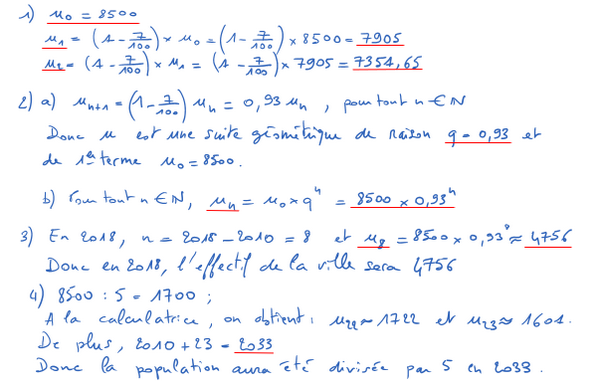 1) u₀ = 8500
u₁ = (1 - 7/100) × u₀ = (1 - 7/100) × 8500 = 7905
u₂ = (1 - 7/100) × u₁ = (1 - 7/100) × 7905 = 7354,65
2) a) uₙ₊₁ = (1 - 7/100) uₙ = 0,93 uₙ , pour tout n ∈ ℕ
Donc u est une suite géométrique de raison q = 0,93 et
de 1er terme u₀ = 8500.
b) Pour tout n ∈ ℕ, uₙ = u₀ × qⁿ = 8500 × 0,93ⁿ
3) En 2018, n = 2018 - 2010 = 8 et u₈ = 8500 × 0,93⁸ ≈ 4756
Donc en 2018, l'effectif de la ville sera 4756
4) 8500 : 5 = 1700 ;
A la calculatrice, on obtient : u₂₂ ≈ 1722 et u₂₃ ≈ 1601.
De plus, 2010 + 23 = 2033
Donc la population aura été divisée par 5 en 2033.